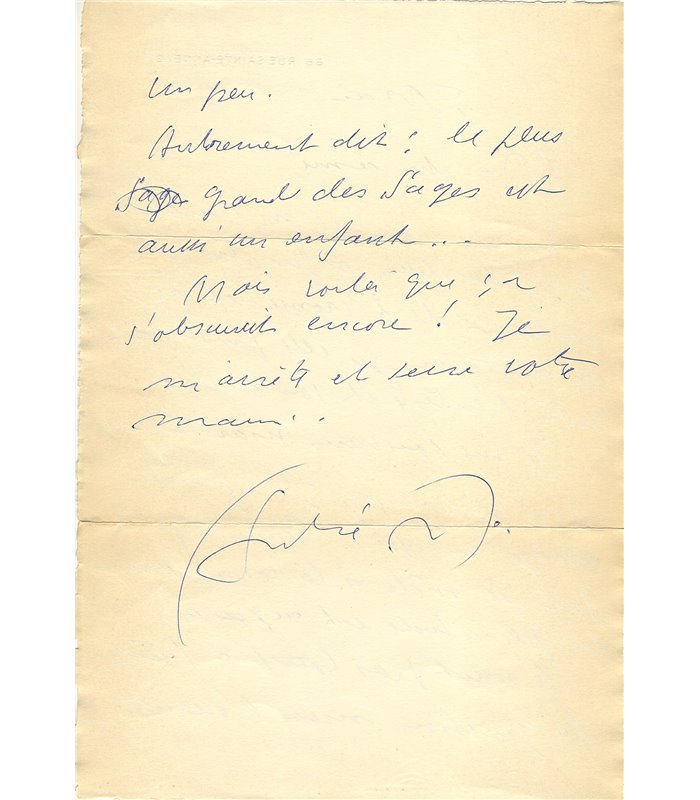 un peu.
Autrement dit : le plus
Sage grand des Sages est
aussi un enfant...
Mais voilà que ça
s'obscurcit encore ! Je
m'arrête et serre votre
main..
André